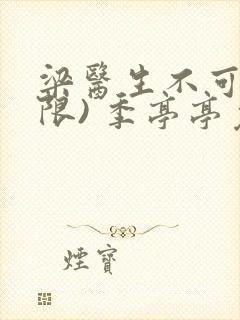 梁醫生不可
限) 季亭亭
煙寶